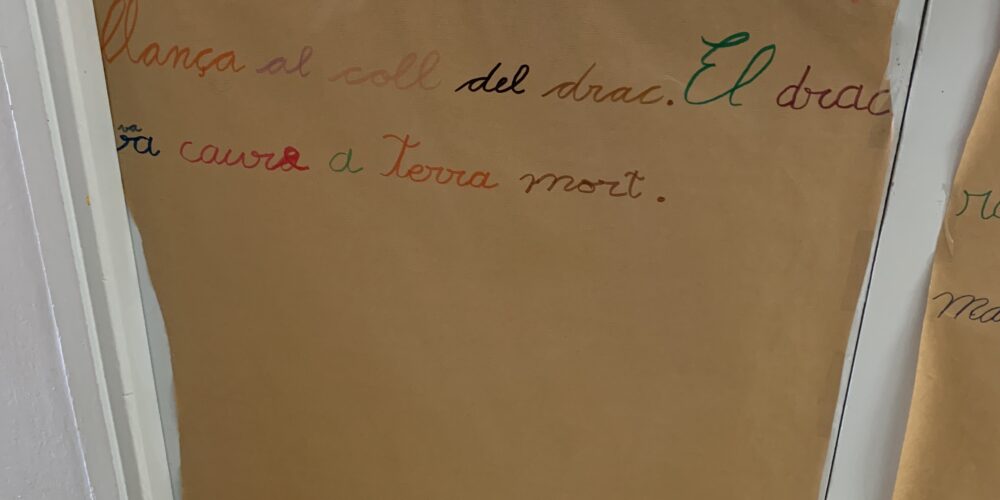 llança al coll del drac. El drac
va
va caure a terra mort.